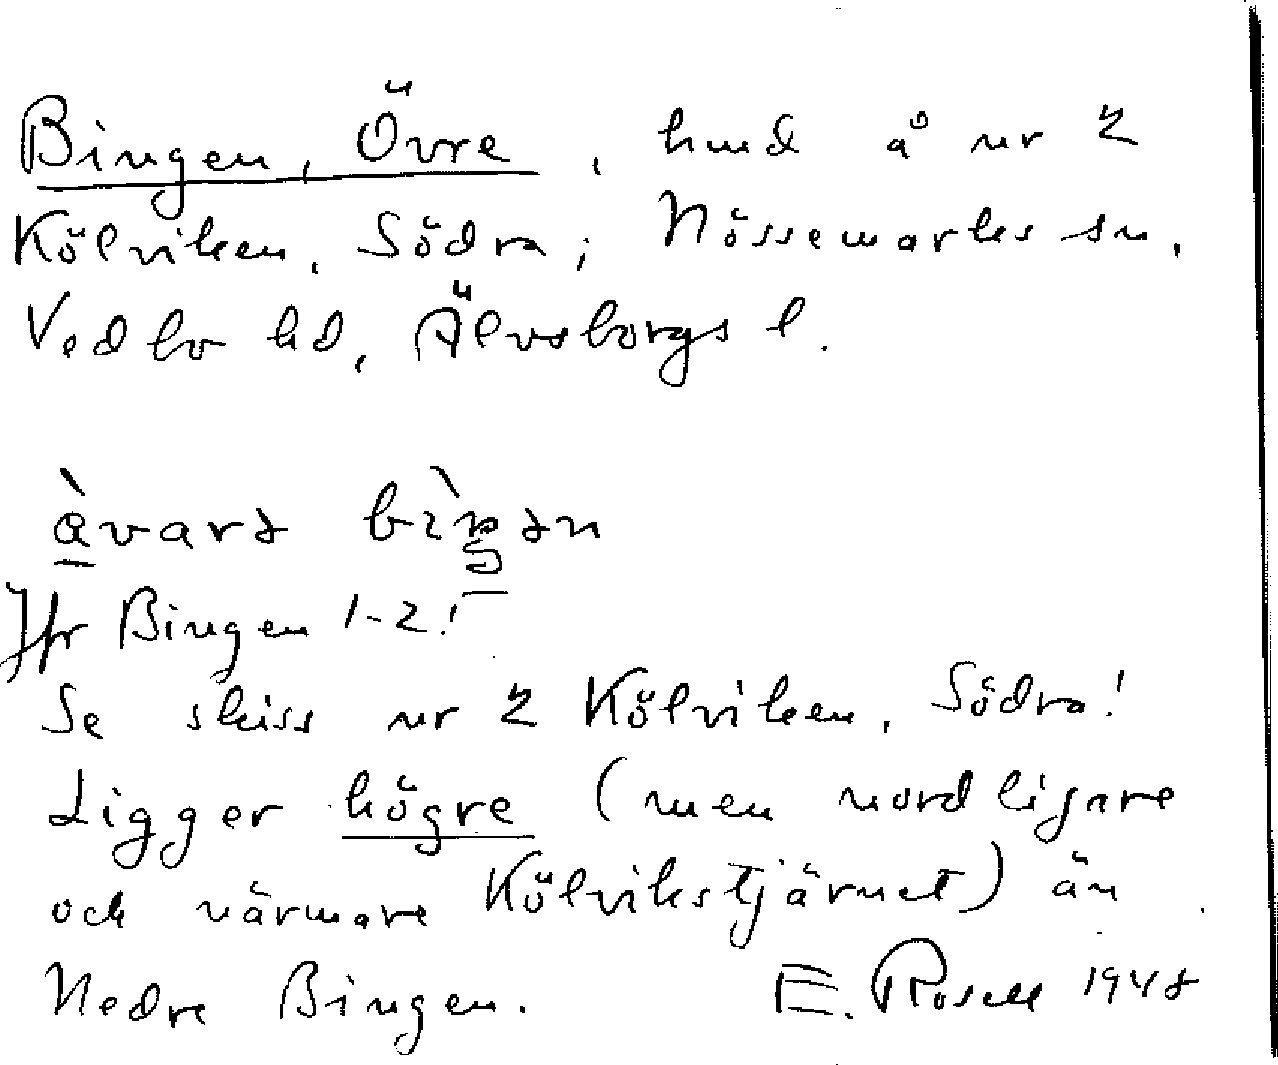 Bingen, Övre, hmd å nr 2
Kölviken, Södra; Nössemarks sn,
Vedbo hd, Älvsborgs l.
Jfr Bingen 1-2!
Se skiss nr 2 Kölviken, Södra!
Ligger högre (men nordligare
och närmare Kölvikstjärnet) än
Nedre Bingen. E. Rosell 1948